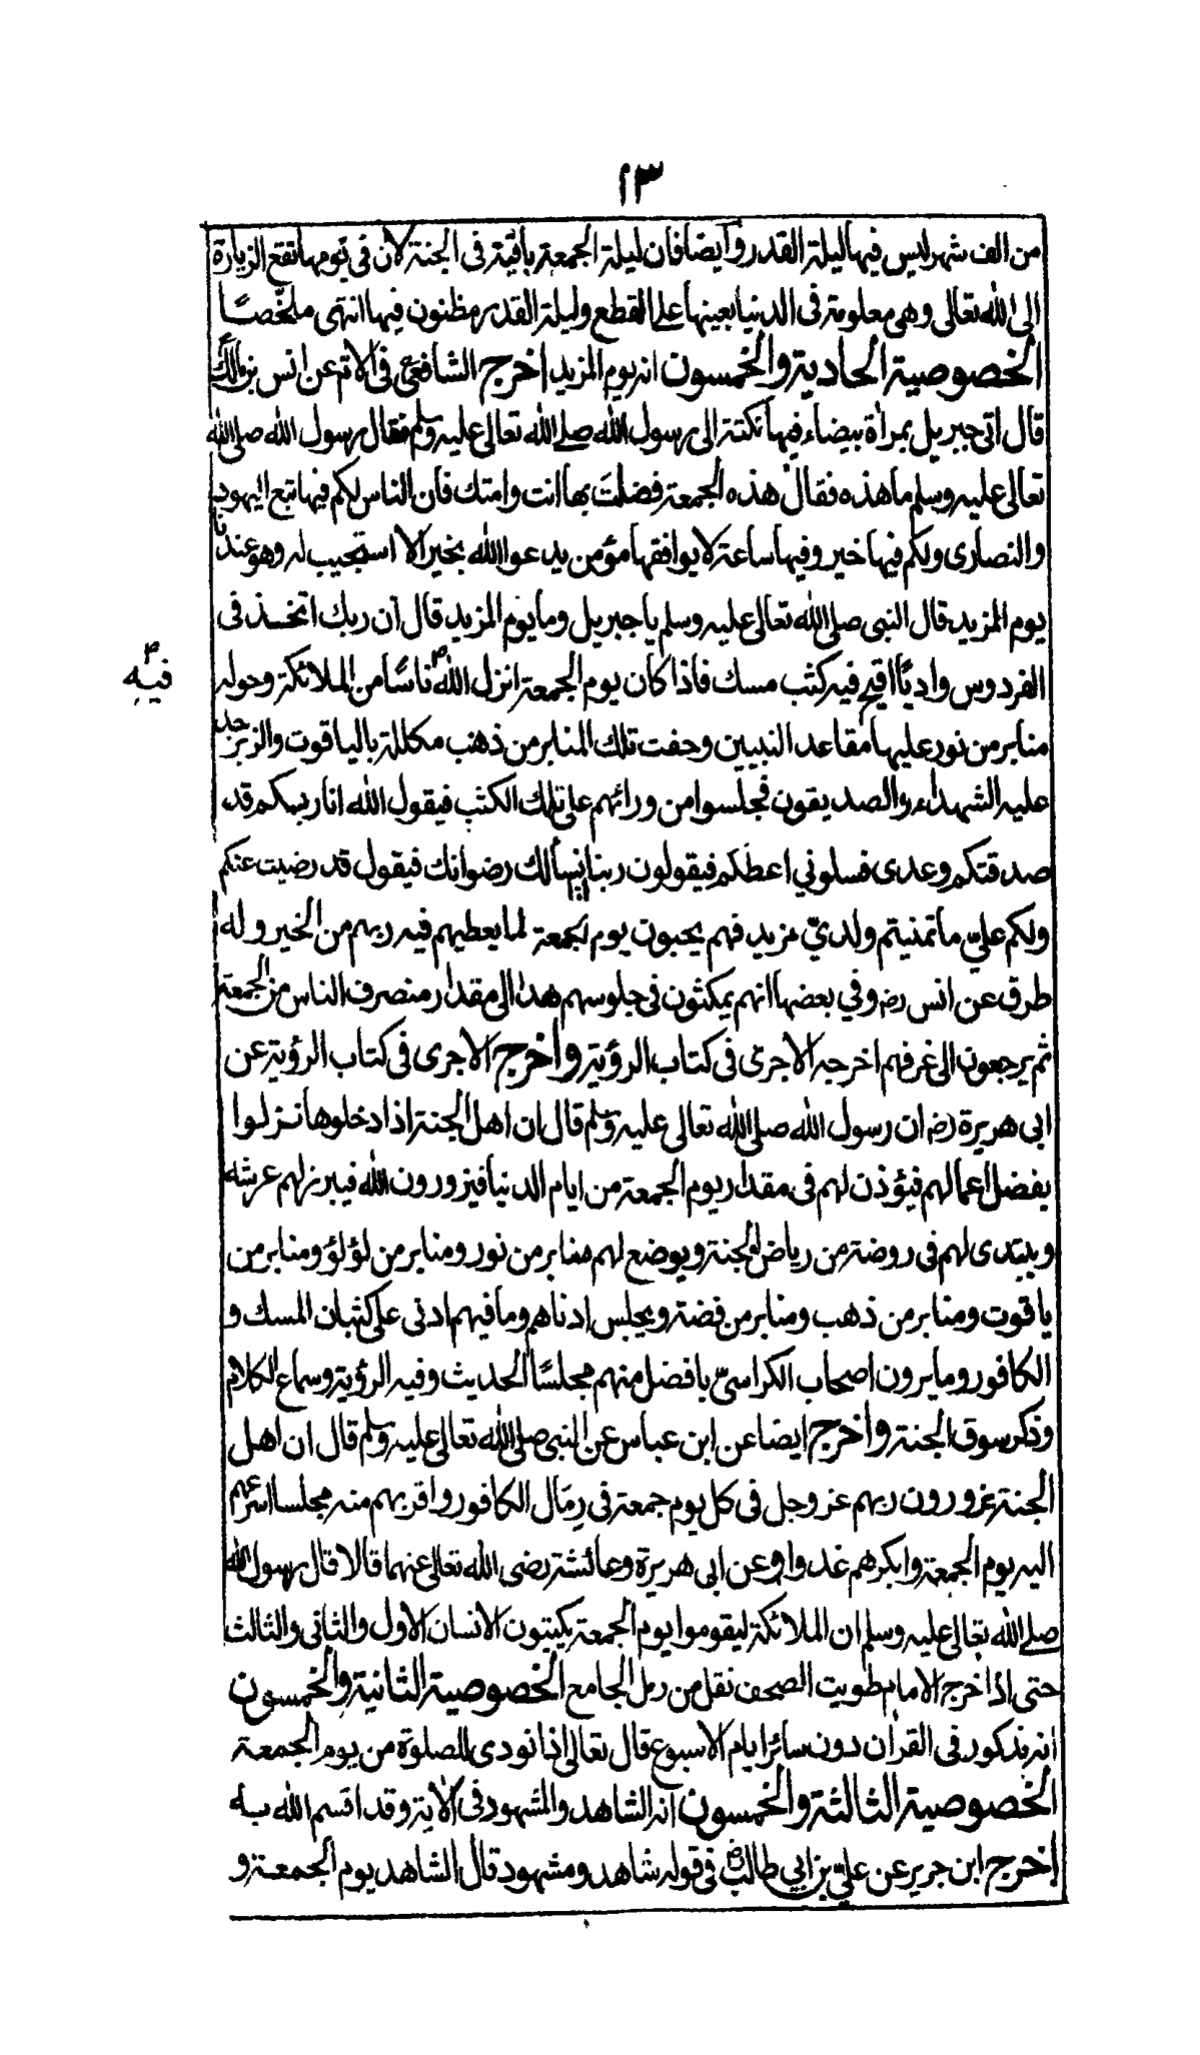 ١٣
من الف شهر ليس فيها ليلة القدر وايضا فان ليلة الجمعة باقية فى الجنة لان فى يومها تقع الزيارة
الى الله تعالى وهى معلومة فى الدنيا بعينها على القطع وليلة القدر مظنون فيها انتهى ملخّصًا
الخصوصية الحادية والخمسون انه يوم المزيد اخرج الشافعى فى الام عن انس بن مالك
قال اتى جبريل بمرأة بيضاء فيها نكتة الى رسول الله صلى الله تعالى عليه وسلم فقال رسول الله صلى الله
تعالى عليه وسلم ما هذه فقال هذه الجمعة فضلتَ بها انت وامتك فان الناس لكم فيها تبع اليهود
والنصارى ولكم فيها خير وفيها ساعة لا يوافقها مؤمن يدعوا الله بخير الا استجيب له وهو عندنا
يوم المزيد قال النبى صلى الله تعالى عليه وسلم يا جبريل وما يوم المزيد قال ان ربك اتخذ فى
الفردوس واديًا افيح فيه كثب مسك فاذا كان يوم الجمعة انزل الله ناسًا من الملائكة وحوله
فيه
منابر من نور عليها مقاعد النبيين وحفت تلك المنابر من ذهب مكللة بالياقوت والزبرجد
عليه الشهداء والصديقون فجلسوا من ورائهم على تلك الكثب فيقول الله انا ربكم قد
صدقتكم وعدى فسلوني اعطكم فيقولون ربنا نسألك رضوانك فيقول قد رضيت عنكم
ولكم عليّ ما تمنيتم ولديّ مزيد فهم يحبون يوم الجمعة لما يعطيهم فيه ربهم من الخير وله
طرق عن انس رض وفي بعضها انهم يمكثون فى جلوسهم هذا الى مقدار منصرف الناس من الجمعة
ثم يرجعون الى غرفهم اخرجه الاجرىّ فى كتاب الرؤية واخرج الاجرى فى كتاب الرؤية عن
ابى هريرة رض ان رسول الله صلى الله تعالى عليه وسلم قال ان اهل الجنة اذا دخلوها نزلوا
بفضل اعمالهم فيؤذن لهم فى مقدار يوم الجمعة من ايام الدنيا فيزورون الله فيبرز لهم عرشه
ويبتدى لهم فى روضة من رياض الجنة ويوضع لهم منابر من نور ومنابر من لؤلؤ ومنابر من
ياقوت ومنابر من ذهب ومنابر من فضة ويجلس ادناهم وما فيهم ادنى على كثبان المسك و
الكافور وما يرون اصحاب الكراسىّ بافضل منهم مجلسًا الحديث وفيه الرؤية وسماع الكلام
وذكر سوق الجنة واخرج ايضا عن ابن عباس عن النبى صلى الله تعالى عليه وسلم قال ان اهل
الجنة يزورون ربهم عز وجل فى كل يوم جمعة فى رِمَال الكافور واقربهم منه مجلسا اسرعهم
اليه يوم الجمعة وابكرهم غدوا وعن ابى هريرة وعائشة رضى الله تعالى عنهما قالا قال رسول الله
صلى الله تعالى عليه وسلم ان الملائكة ليقوموا يوم الجمعة يكتبون الانسان الاول والثانى والثالث
حتى اذا خرج الامام طويت الصحف نقل من رمل الجامع الخصوصية الثانية والخمسون
انه مذكور فى القرآن دون سائر ايام الاسبوع قال تعالى اذا نودى للصلوة من يوم الجمعة
الخصوصية الثالثة والخمسون انه الشاهد والمشهود فى الاية وقد اقسم الله به
اخرج ابن جرير عن عليّ بن ابي طالب رض فى قوله شاهد ومشهود قال الشاهد يوم الجمعة و